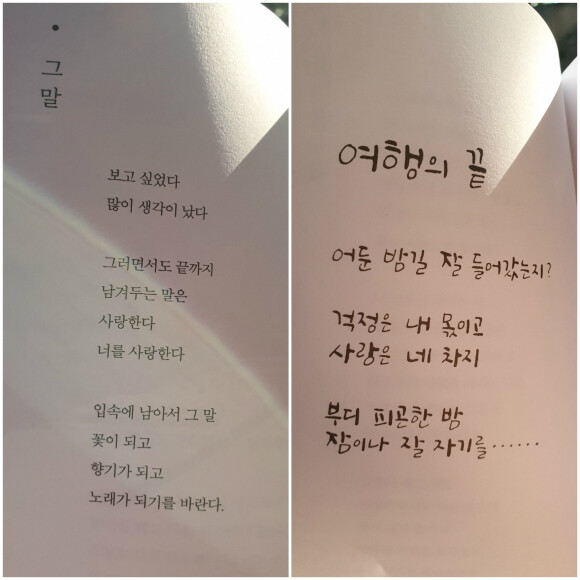 그
말
보고 싶었다
많이 생각이 났다
그러면서도 끝까지
남겨두는 말은
사랑한다
너를 사랑한다
입속에 남아서 그 말
꽃이 되고
향기가 되고
노래가 되기를 바란다.
여행의 끝
어둔 밤길 잘 들어갔는지?
걱정은 내 몫이고
사랑은 네 차지
부디 피곤한 밤
잠이나 잘 자기를……